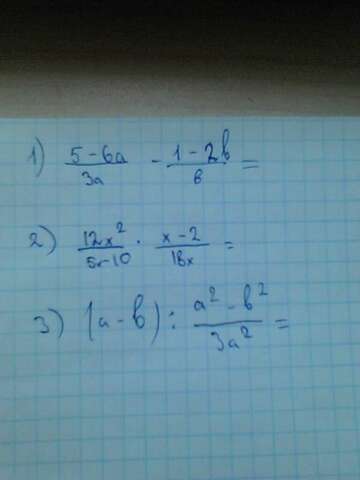 1) (5-6a)/(3a) - (1-2b)/b =
2) (12x²)/(5x-10) · (x-2)/(18x) =
3) (a-b) : (a²-b²)/(3a²) =